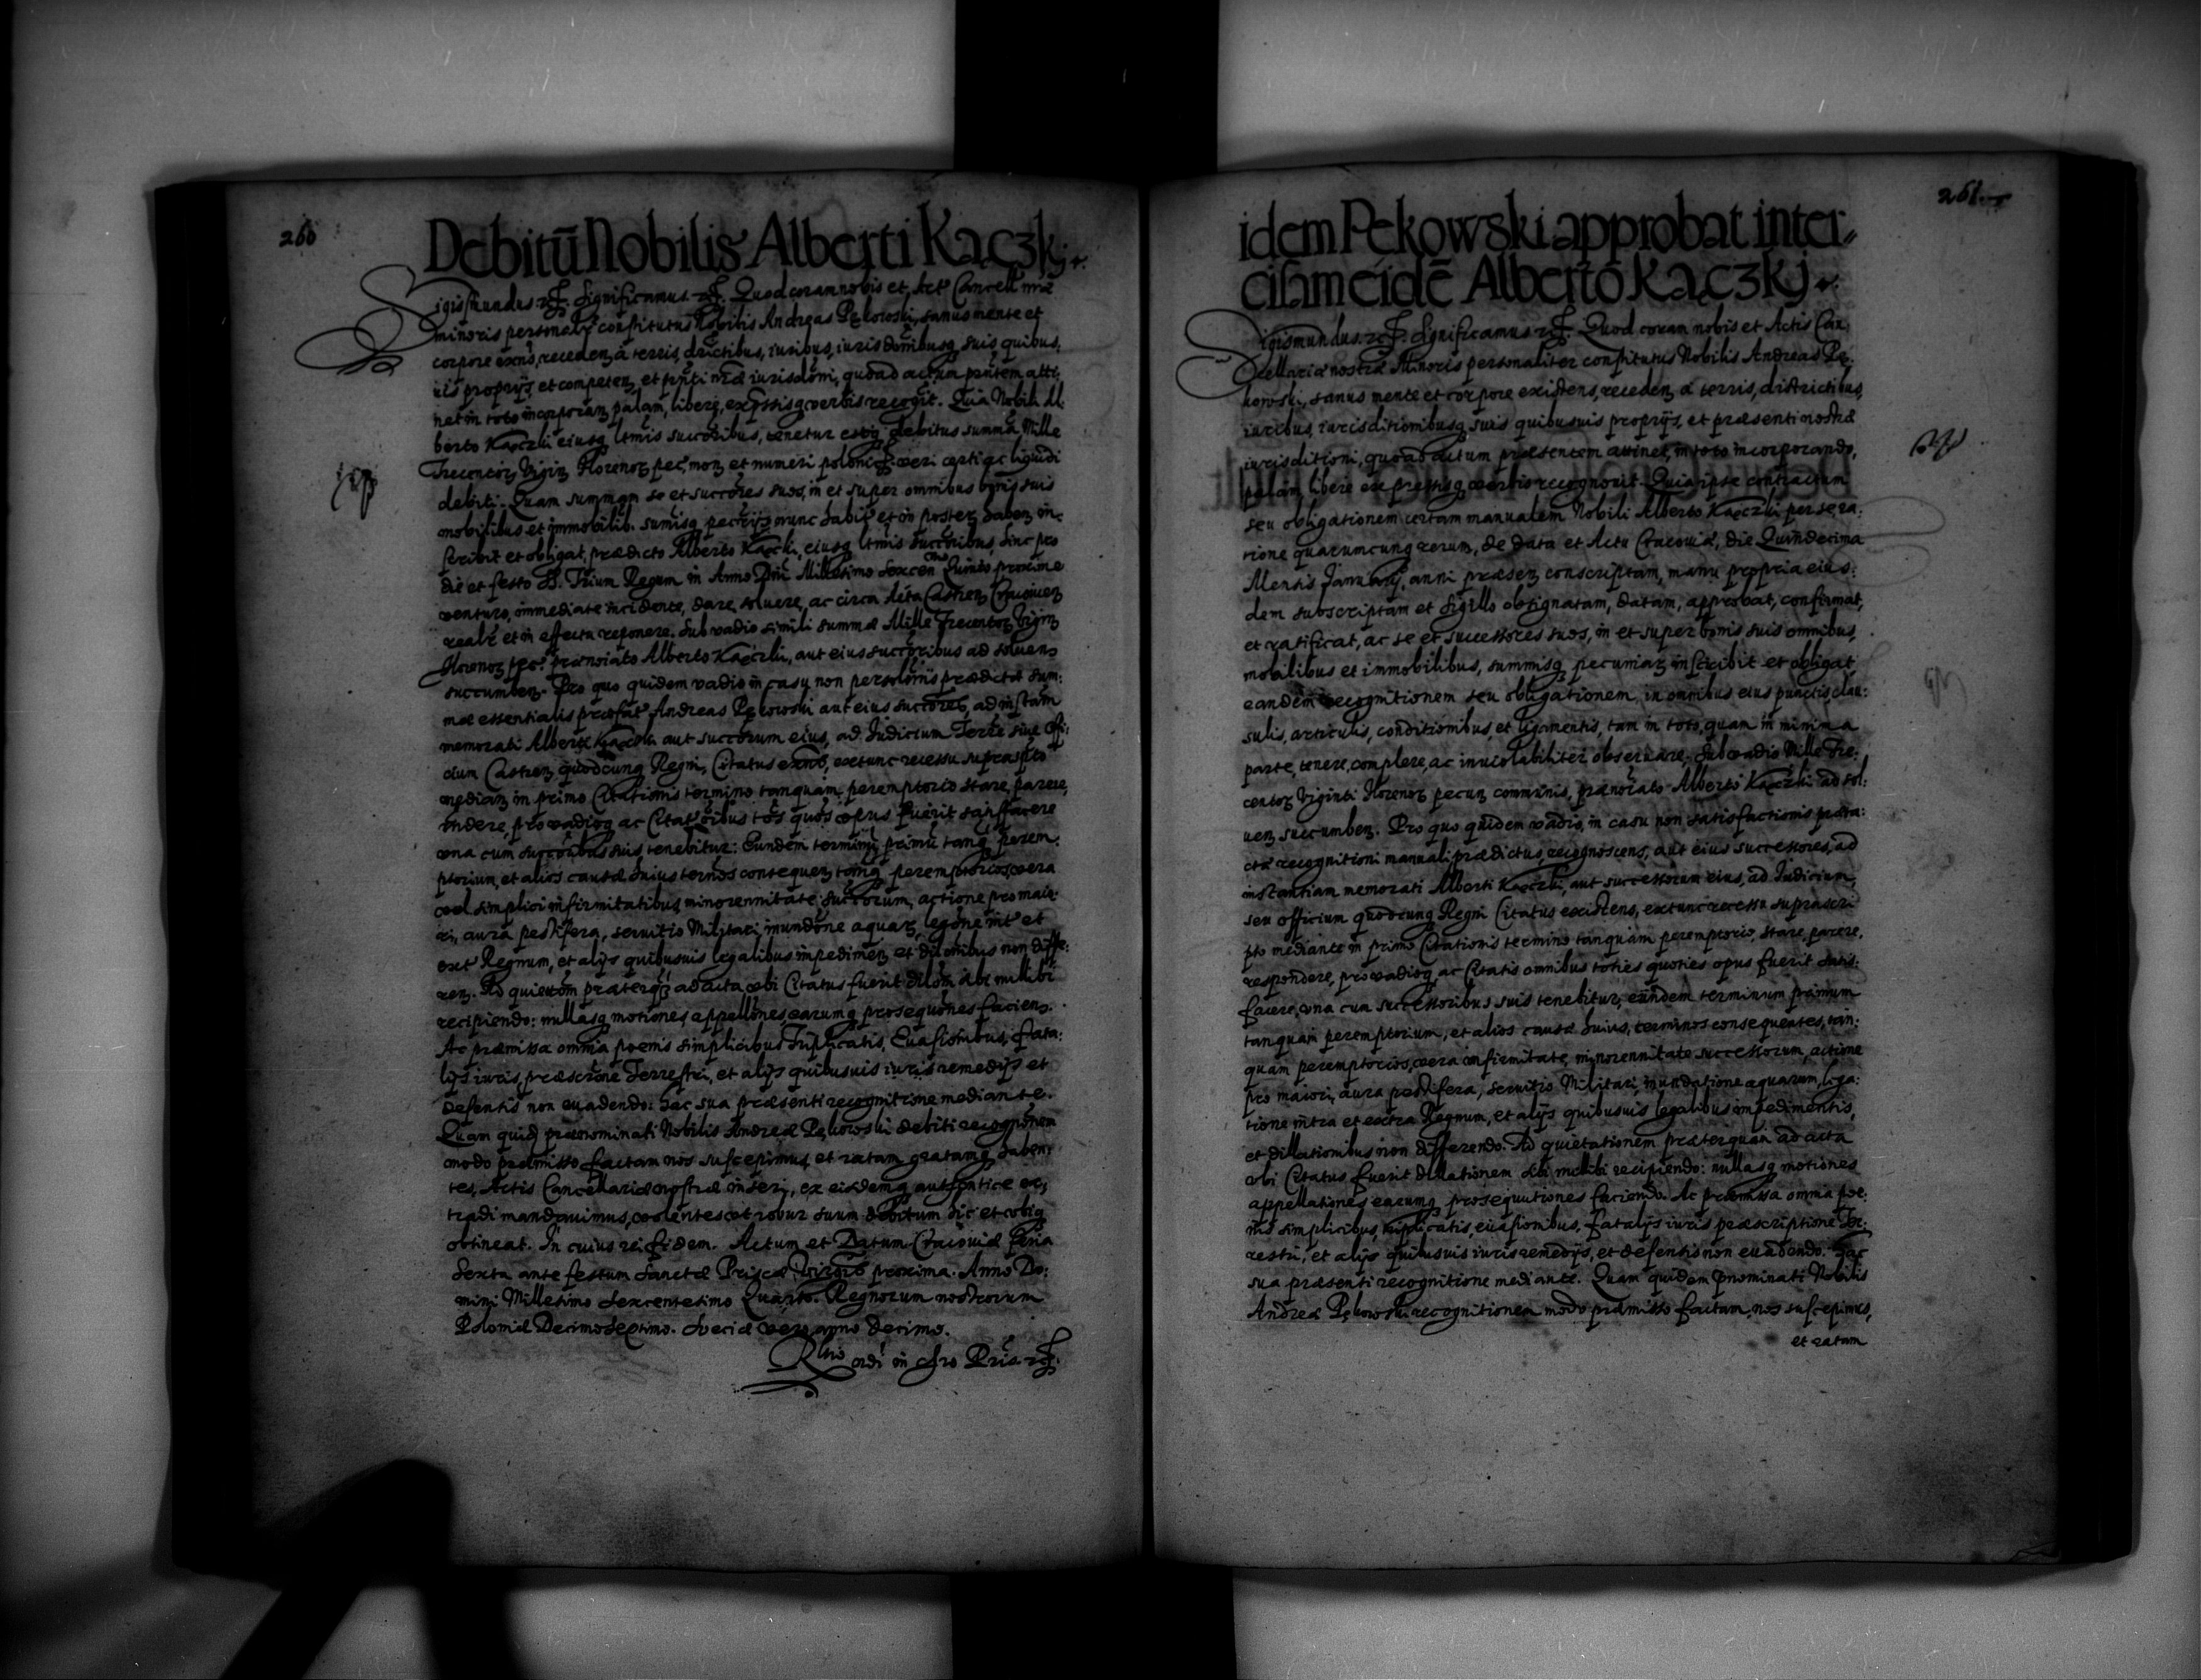 260
Debitū Nobilis Alberti Kączkj
Sigismundus etc. Significamus etc. Quod coram nobis et Act Cancell nrae
minoris personalr constitutus Nobilis Andreas Pękowski, sanus mente et
corpore exns, receden a terris, districtibus, iuribus, iurisdonibusq suis quibus:
uis proprijs, et competen et pnti nrae iurisdoni, quoad actum pntem atti:
net in toto incorporan palam, libere, expssisq verbis recogt. Quia Nobili Al:
berto Kączki eiusq ltmis succoribus, tenetur estq debitus summa Mille
Trecentor Vigin florenor pec, mon et numeri polonic veri certi ac liquidi
debiti. Quam summam se et succores suos, in et super omnibus bonis suis
mobilibus et immobilib. sumisq pecrijs nunc habit et in poster haben in:
scribit et obligat, praedicto Alberto Kączki, eiusq ltmis succoribus, hinc pro
die et festo B. Trium Regum in Anno Dni Millesimo Sexcen Quinto proxime
venturo, immediate incidente, dare, soluere, ac circa Acta Castren Cracouien
realr et in effectu reponere. Sub vadio simili summae Mille Trecentor Vigin
florenor pec. praenoiato Alberto Kączki, aut eius succoribus ad soluen
succumben. Pro quo quidem vadio in casu non persolonis praedictae sum:
mae essentialis praefat Andreas Pękowski aut eius succores, ad instam
memorati Alberti Kączki aut succorum eius, ad Iudicium Terre siue offi:
cium Castren quodcunq Regni, Citatus exns, extunc recessu suprascpto
median in primo Citationis termino tanquam peremptorio stare, parere,
rndere, pro vadioq ac Citat oibus toes quoes opus fuerit satisffacere
vna cum succoribus suis tenebitur: Eundem terminu primu tanq perem:
ptorium, et alios causae huius ternos consequen tanq peremptorios, vera
vel simplici infirmitatibus, minorennitate succorum, actione pro maio:
ri, aura pestifera, seruitio Militari, inundone aquar, legone int et
ext Regnum, et alijs quibusuis legalibus impedimen et dilonibus non diffe:
ren. Ad quietom praeterq ad acta vbi Citatus fuerit dilom sibi nullibi
recipiendo: nullasq motiones, appellones, earumq prosequones facien.
Ac praemissa omnia poenis simplicibus Triplicatis, Euasionibus, fata:
lijs iuris, praescrone Terrestri, et alijs quibusuis iuris remedijs et
defensis non euadendo: hac sua praesenti recognitione mediante.
Quam quid praenominati Nobilis Andreae Pękowski debiti recognonem
modo praemisso factam nos suscepimus, et ratam gratamq haben:
tes, Actis Cancellariae nostrae inseri, ex eisdemq authentice ex:
tradi mandauimus, volentes vt robur suum debitum hic et vbiq
obtineat. In cuius rei fidem. Actum et Datum Cracouiae feria
Sexta ante festum Sanctae Priscae Virginis proxima. Anno Do:
mini Millesimo Sexcentesimo Quarto. Regnorum nostrorum
Poloniae Decimoseptimo. Sueciae vero anno decimo.
261
idem Pękowski approbat inter=
cisam eidē Alberto Kączkj
Sigismundus etc. Significamus etc. Quod coram nobis et Actis Can:
cellariae nostrae Minoris personaliter constitutus Nobilis Andreas Pę:
kowski, sanus mente et corpore existens, receden a terris, districtibus,
iuribus, iurisditionibusq suis quibusuis proprijs, et praesenti nostrae
iurisditioni, quoad actum praesentem attinet, in toto incorporando,
palam, libere expressisq verbis recognouit. Quia ipse contractum
seu obligationem certam manualem Nobili Alberto Kączki per se, ra:
tione quarumcunq rerum, de data et Actu Cracouiae, die Quindecima
Mensis Januarij, anni praesen conscriptam, manu propria eius:
dem subscriptam et Sigillo obsignatam, datam, approbat, confirmat,
et ratificat, ac se et successores suos, in et super bonis suis omnibus,
mobilibus et immobilibus, summisq pecuniar inscribit et obligat
eandem recognitionem seu obligationem, in omnibus eius punctis, clau:
sulis, articulis, conditionibus, et ligamentis, tam in toto, quam in minima
parte, tenere, complere, ac inuiolabiliter obseruare. Sub vadio Mille Tre:
centor Viginti florenor pecun communis, praenoiato Alberto Kączki ad sol:
uen succumben. Pro quo quidem vadio, in casu non satisfactionis praefa:
ctae recognitioni manuali praedictus, recognoscens, aut eius successores, ad
instantiam memorati Alberti Kączki, aut successorum eius, ad Iudicium,
seu officium quodcunq Regni Citatus existens, extunc recessu suprascri
pto mediante in primo Citationis termino tanquam peremptorio, stare, parere,
respondere, pro vadioq ac Citatis omnibus toties quoties opus fuerit satis:
facere, vna cum successoribus suis tenebitur, eundem terminum primum
tanquam peremptorium, et alios causae huius, terminos consequentes, tan:
quam peremptorios, vera infirmitate, minorennitate successorum, actione
pro maiori, aura pestifera, seruitio Militari, inundatione aquarum, lega:
tione intra et extra Regnum, et alijs quibusuis legalibus impedimentis,
et dillationibus non differendo. Ad quietationem praeterquam ad acta
vbi Citatus fuerit dillationem sibi nullibi recipiendo: nullasq motiones
appellationes, earumq prosequutiones faciendo. Ac praemissa omnia poe:
nis simplicibus, triplicatis, euasionibus, fatalijs iuris praescriptione Ter:
restri, et alijs quibusuis iuris remedijs, et defensis non euadendo. Hac
sua praesenti recognitione mediante. Quam quidem pnominati Nobilis
Andreae Pękowski recognitionem modo praemisso factam, nos suscepimus,
et ratam